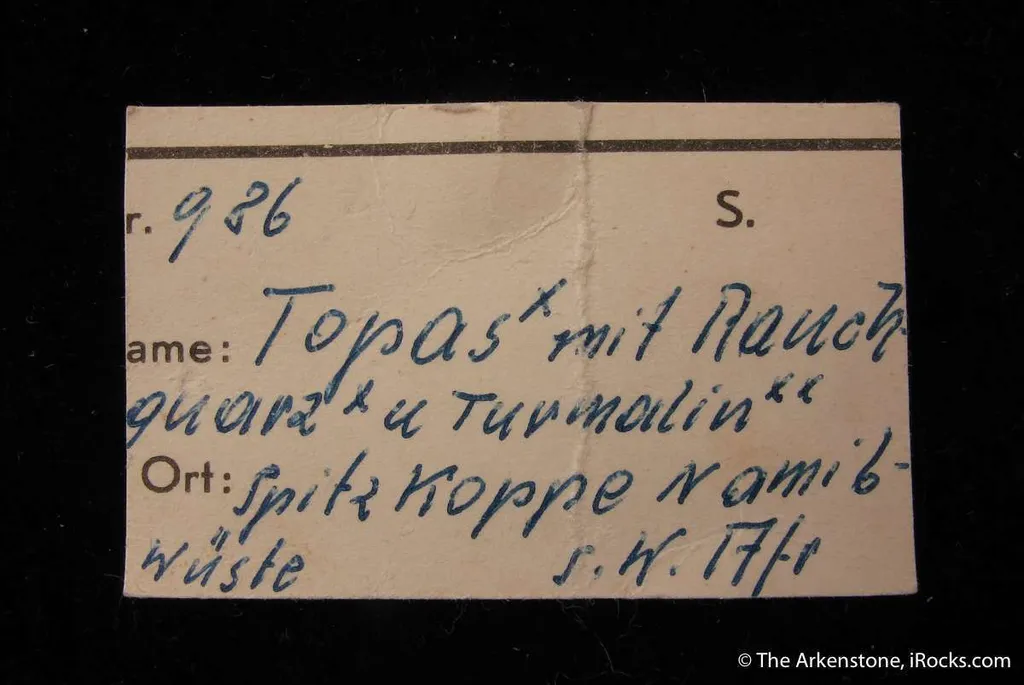 r. 986 S.
ame: Topas x mit Rauch-
quarz x u Turmalin xx
Ort: Spitzkoppe Namib-
Wüste s.W. Afr
© The Arkenstone, iRocks.com